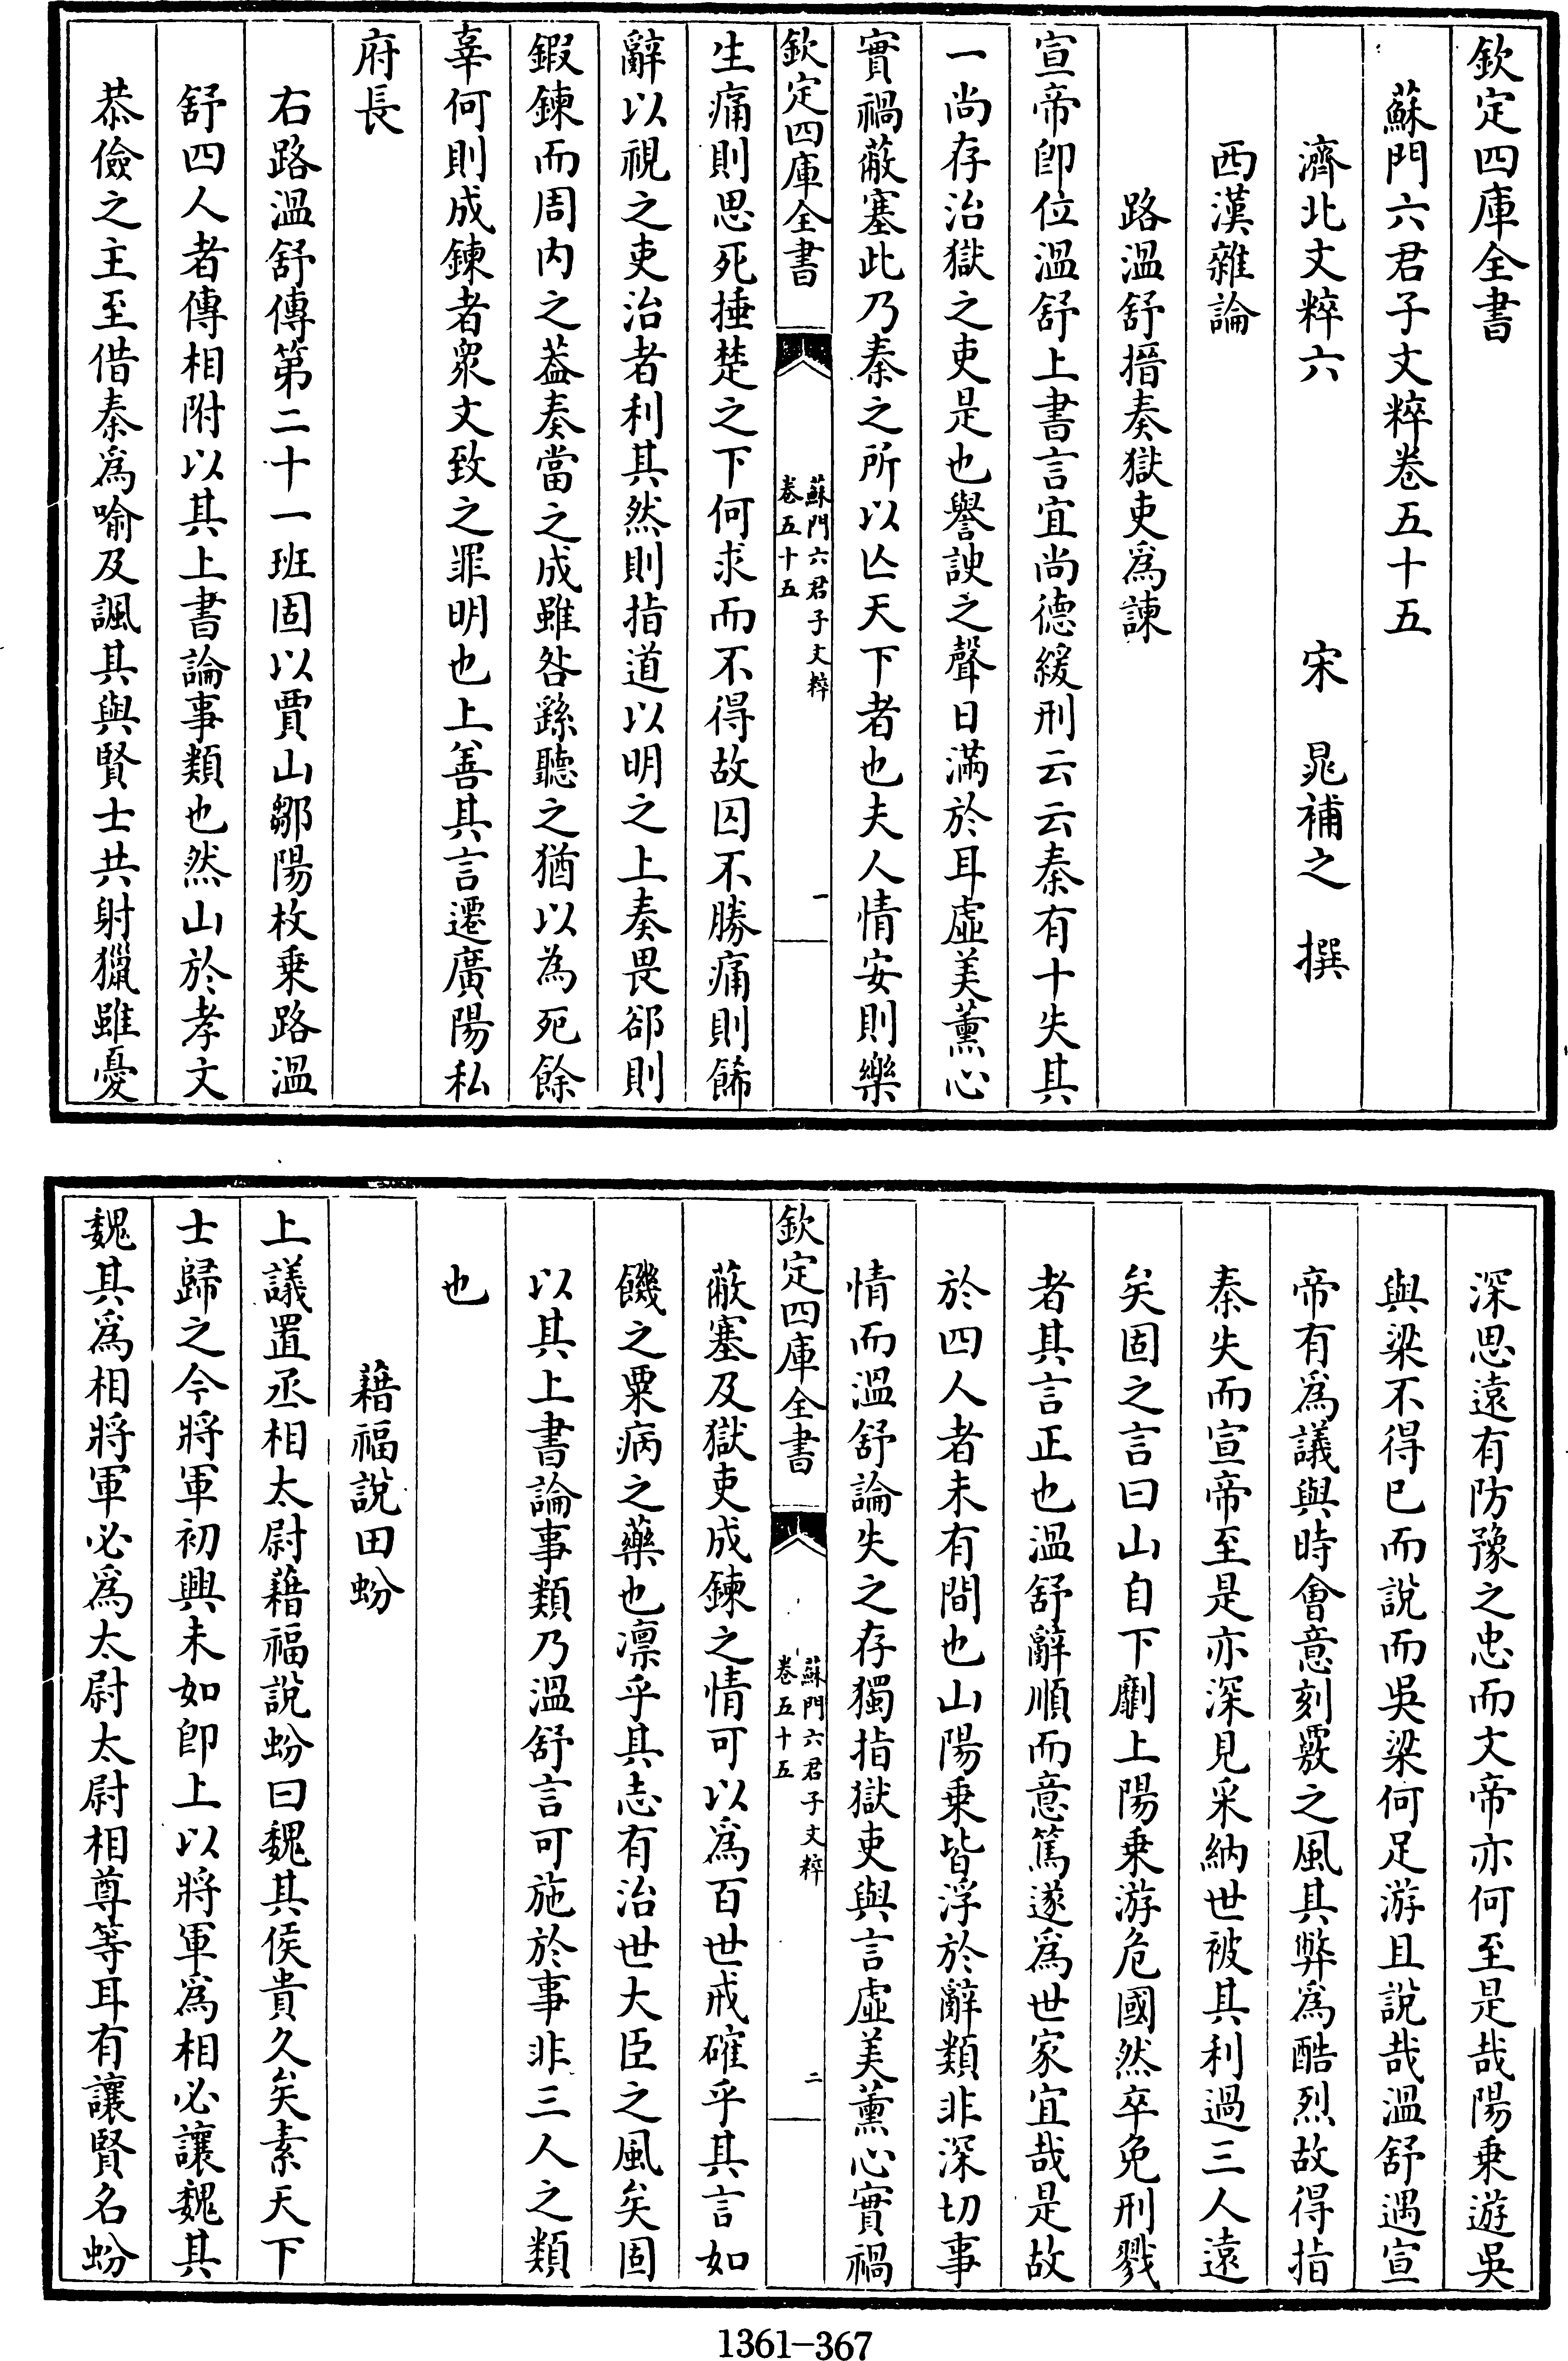 欽定四庫全書
蘇門六君子文粹卷五十五
濟北文粹六 宋 晁補之 撰
西漢雜論
路溫舒搢奏獄吏爲諫
宣帝卽位溫舒上書言宜尚德緩刑云云秦有十失其
一尚存治獄之吏是也譽諛之聲日滿於耳虛美薰心
實禍蔽塞此乃秦之所以亾天下者也夫人情安則樂
欽定四庫全書
蘇門六君子文粹
卷五十五
一
生痛則思死捶楚之下何求而不得故囚不勝痛則餙
辭以視之吏治者利其然則指道以明之上奏畏郤則
鍜鍊而周内之葢奏當之成雖咎繇聽之猶以為死餘
辜何則成鍊者衆文致之罪明也上善其言遷廣陽私
府長
右路溫舒傳第二十一班固以賈山鄒陽枚乗路溫
舒四人者傳相附以其上書論事類也然山於孝文
恭儉之主至借秦爲喻及諷其與賢士共射獵雖憂
深思遠有防豫之忠而文帝亦何至是哉陽乗遊吳
與梁不得已而說而吳梁何足游且說哉溫舒遇宣
帝有爲議與時會意刻覈之風其弊爲酷烈故得指
秦失而宣帝至是亦深見采納世被其利過三人遠
矣固之言曰山自下劘上陽乗游危國然卒免刑戮
者其言正也溫舒辭順而意篤遂爲世家宜哉是故
於四人者未有間也山陽乗皆浮於辭類非深切事
情而溫舒論失之存獨指獄吏與言虛美薰心實禍
欽定四庫全書
蘇門六君子文粹
卷五十五
二
蔽塞及獄吏成鍊之情可以爲百世戒確乎其言如
饑之粟病之藥也凛乎其志有治世大臣之風矣固
以其上書論事類乃溫舒言可施於事非三人之類
也
藉福說田蚡
上議置丞相太尉藉福說蚡曰魏其侯貴久矣素天下
士歸之今將軍初興未如卽上以將軍爲相必讓魏其
魏其爲相將軍必爲太尉太尉相尊等耳有讓賢名蚡
1361-367